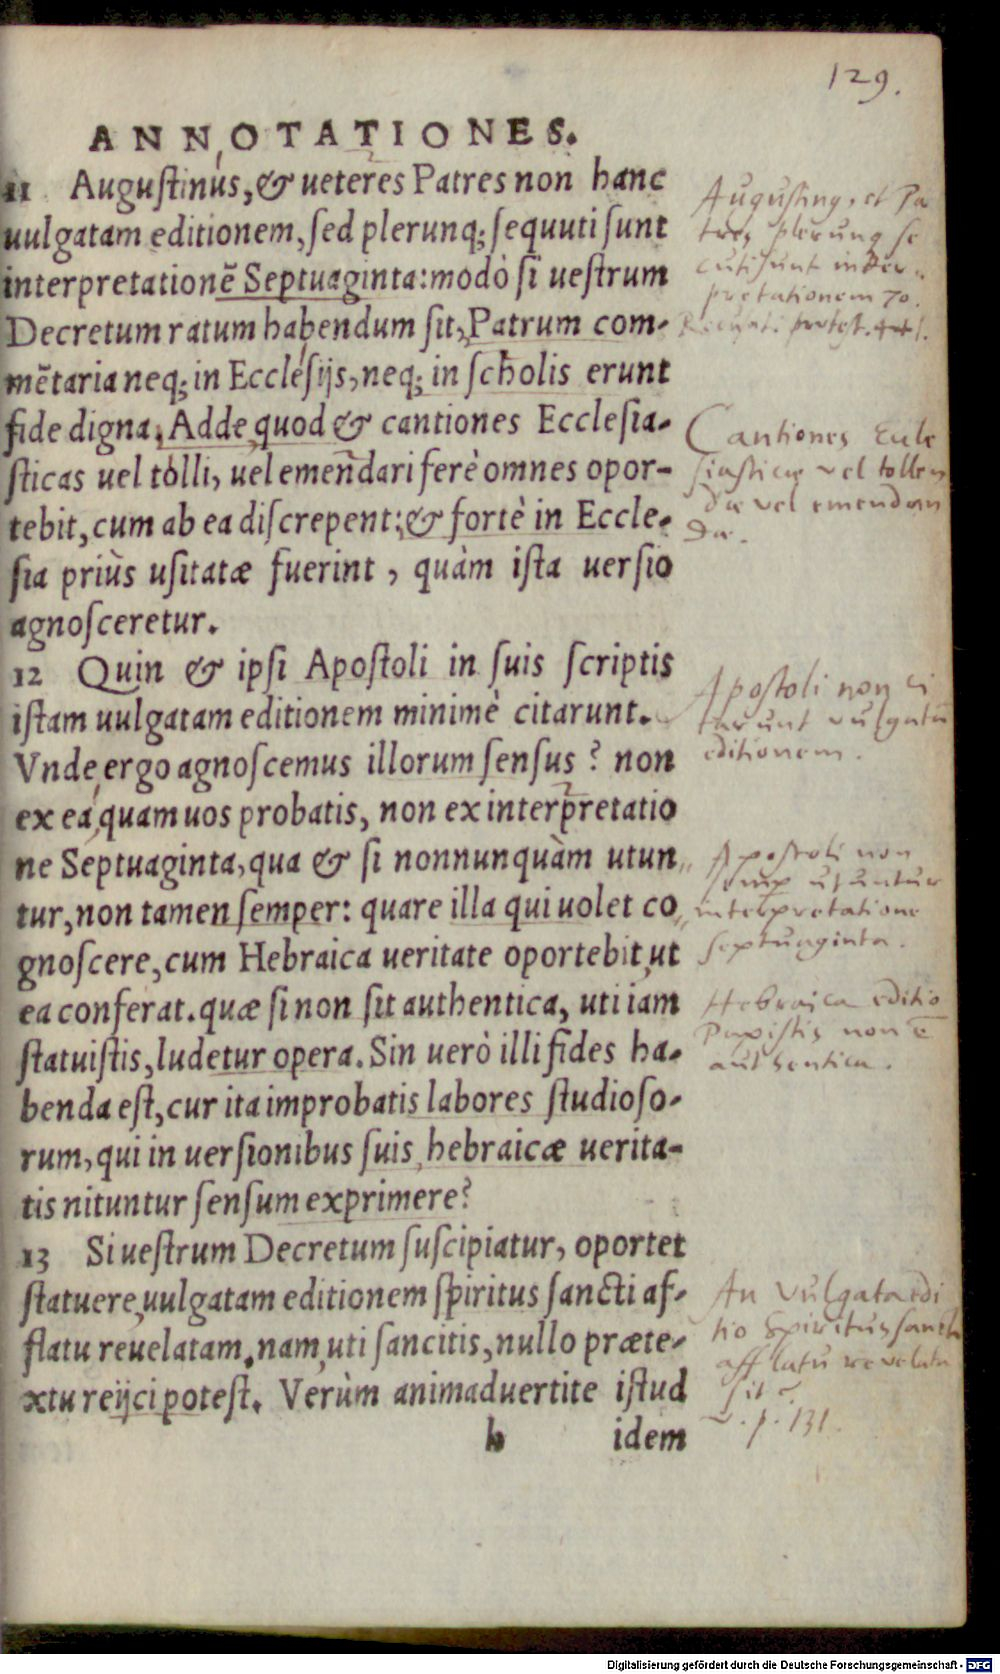 129.
ANNOTATIONES.
11 Augustinus, & ueteres Patres non hanc
uulgatam editionem, sed plerunq; sequuti sunt
interpretationē Septuaginta: modò si uestrum
Decretum ratum habendum sit, Patrum com-
mētaria neq; in Ecclesijs, neq; in scholis erunt
fide digna. Adde quod & cantiones Ecclesia-
sticas uel tolli, uel emendari ferè omnes opor-
tebit, cum ab ea discrepent: & fortè in Eccle-
sia priùs usitatæ fuerint, quàm ista uersio
agnosceretur.
12 Quin & ipsi Apostoli in suis scriptis
istam uulgatam editionem minimè citarunt.
Vnde ergo agnoscemus illorum sensus? non
ex ea, quam uos probatis, non ex interpretatio
ne Septuaginta, qua & si nonnunquàm utun
tur, non tamen semper: quare illa qui uolet co
gnoscere, cum Hebraica ueritate oportebit, ut
ea conferat. quæ si non sit authentica, uti iam
statuistis, ludetur opera. Sin uerò illi fides ha-
benda est, cur ita improbatis labores studioso-
rum, qui in uersionibus suis hebraicæ uerita-
tis nituntur sensum exprimere?
13 Si uestrum Decretum suscipiatur, oportet
statuere, uulgatam editionem spiritus sancti af-
flatu reuelatam. nam, uti sancitis, nullo præte-
xtu reijci potest. Verùm animaduertite istud
h idem
Augustinus, et Pa
tres plerunq se
cuti sunt inter-
pretationem 70.
Cantiones Eccle
siasticæ vel tollen
dæ vel emendan
dæ.
Apostoli non ci
tarunt vulgatā
editionem.
Apostoli non
semp utuntur
interpretatione
septuaginta.
Hebraica editio
Papistis non ē
authentica.
An Vulgata edi
tio Spiritus sancti
afflatu revelata
sit?
v. p. 131.
Digitalisierung gefördert durch die Deutsche Forschungsgemeinschaft - DFG